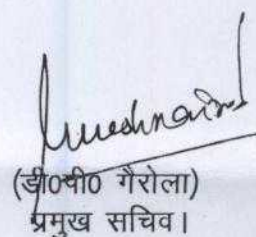 (डी0पी0 गैरोला)
प्रमुख सचिव।